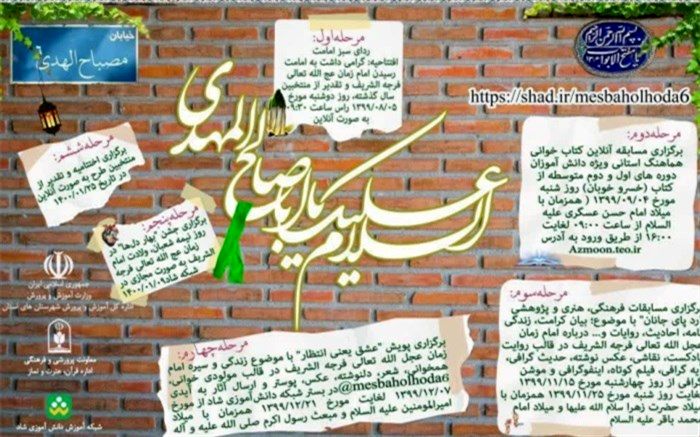 خیابان
مصباح الهدی
https://shad.ir/mesbaholhoda6
السلام علیک یا اباصالح المهدی
مرحله اول:
ردای سبز امامت
افتتاحیه: گرامی داشت به امامت
رسیدن امام زمان عج الله تعالی
فرجه الشریف و تقدیر از منتخبین
سال گذشته، روز دوشنبه مورخ
۱۳۹۹/۰۸/۰۵ راس ساعت ۰۹:۳۰
به صورت آنلاین
مرحله دوم:
برگزاری مسابقه آنلاین کتاب خوانی
هماهنگ استانی ویژه دانش آموزان
دوره های اول و دوم متوسطه از
کتاب (خسرو خوبان) روز شنبه
مورخ ۱۳۹۹/۰۹/۰۴ ( همزمان با
میلاد امام حسن عسکری علیه
السلام از ساعت ۰۹:۰۰ لغایت
۱۶:۰۰ از طریق ورود به آدرس
Azmoon.teo.ir
مرحله سوم:
برگزاری مسابقات فرهنگی، هنری و پژوهشی
رد پای جانان" با موضوع: بیان کرامت، زندگی
، احادیث، روایات و... درباره امام زمان
عجل الله تعالی فرجه الشریف در قالب روایت
نکست، نقاشی، عکس نوشته، حدیث گرافی،
گرافی، فیلم کوتاه، اینفوگرافی و موشن
گرافی از روز چهارشنبه مورخ ۱۳۹۹/۱۱/۱۵
لغایت روز شنبه مورخ ۱۳۹۹/۱۱/۲۵ همزمان با
میلاد حضرت زهرا سلام الله علیها و میلاد امام
محمد باقر علیه السلام
مرحله چهارم:
برگزاری پویش "عشق یعنی انتظار" با موضوع زندگی و سیره امام
زمان عجل الله تعالی فرجه الشریف در قالب مولودی خوانی،
همخوانی، شعر، دلنوشته، عکس، پوستر و ارسال آثار به آیدی
@mesbaholhoda6 در بستر شبکه دانش آموزی شاد از مورخ
۱۳۹۹/۱۲/۰۷ لغایت مورخ ۱۳۹۹/۱۲/۲۱ همزمان با میلاد
امیرالمومنین علیه السلام و مبعث رسول اکرم صلی الله علیه و آله
مرحله پنجم:
برگزاری جشن "بهار دلها" در
روز نیمه شعبان ولادت امام
زمان عج الله تعالی فرجه
الشریف به صورت مجازی در
شبکه شاد ۱۴۰۰/۰۱/۰۹
مرحله ششم:
برگزاری اختتامیه و تقدیر از
منتخبین طرح به صورت آنلاین
در تاریخ ۱۴۰۰/۰۱/۲۵
جمهوری اسلامی ایران
وزارت آموزش و پرورش
اداره کل آموزش و پرورش شهرستان های استان
معاونت پرورشی و فرهنگی
اداره قرآن، عترت و نماز
شبکه آموزش دانش آموزی شاد